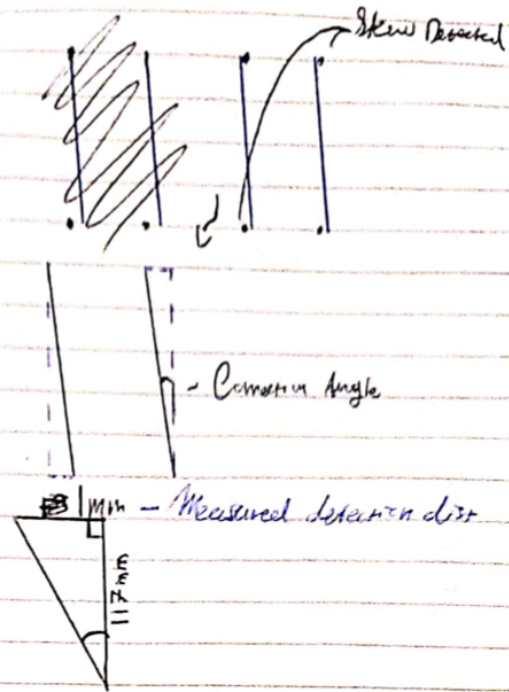 Skew Detected
- Correction Angle
1mm - Measured detection dist